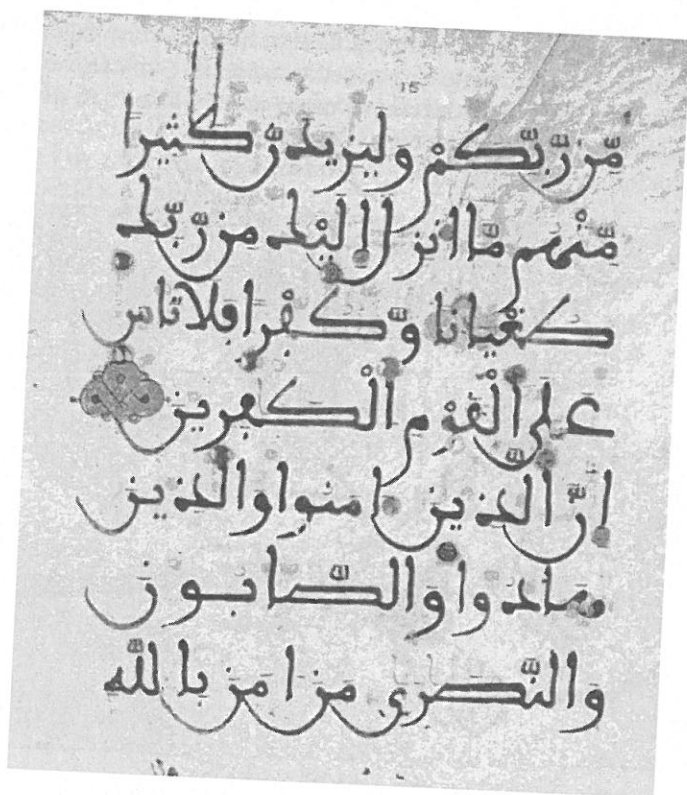 مِّن رَّبِّكُمْ وَلَيَزِيدَنَّ كَثِيرًا
مِّنْهُم مَّا أُنزِلَ إِلَيْكَ مِن رَّبِّكَ
طُغْيَانًا وَّكُفْرًا فَلَا تَاسَ
عَلَى الْقَوْمِ الْكَفِرِينَ
إِنَّ الَّذِينَ ءَامَنُوا وَالَّذِينَ
هَادُوا وَالصَّابُونَ
وَالنَّصَرَى مَنَ امَنَ بِاللَّهِ